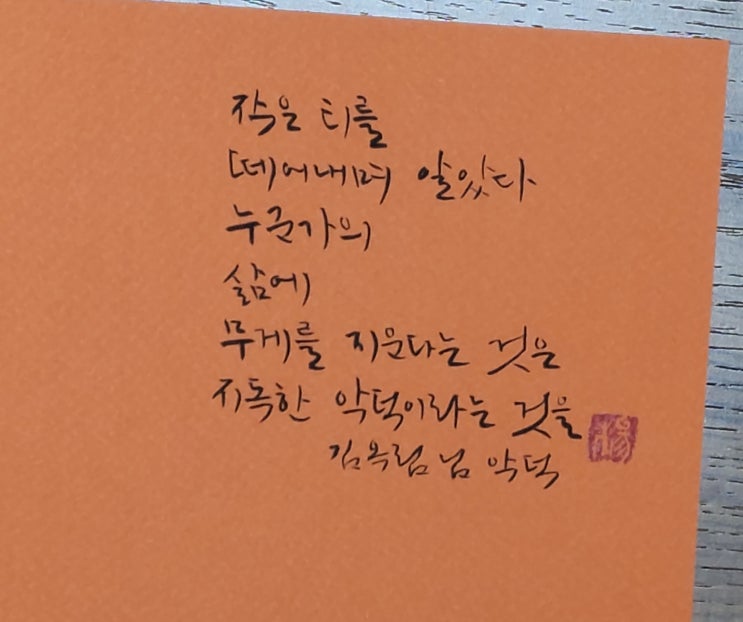 작은 티를
떼어내며 알았다
누군가의
삶에
무게를 지운다는 것은
지독한 악덕이라는 것을
김옥림 님 악덕